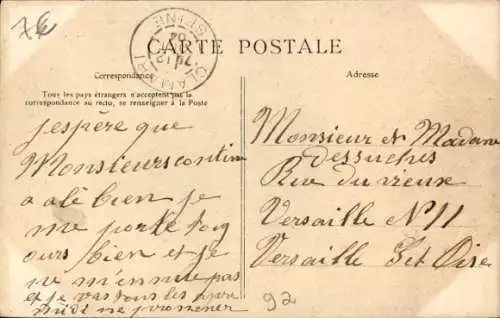 7€
CLAMART SEINE
CARTE POSTALE
Correspondance
Adresse
Tous les pays étrangers n'acceptent pas la
correspondance au recto, se renseigner à la Poste
j'espère que
Monsieurs contin
a alé bien je
me porte touj
ours bien et je
ne m'ennuie pas
et je vas tous les apre
midi me promener
Monsieur et Madame
dessuches
Rue du vieux
Versaille N 11
Versaille Set Oise
92